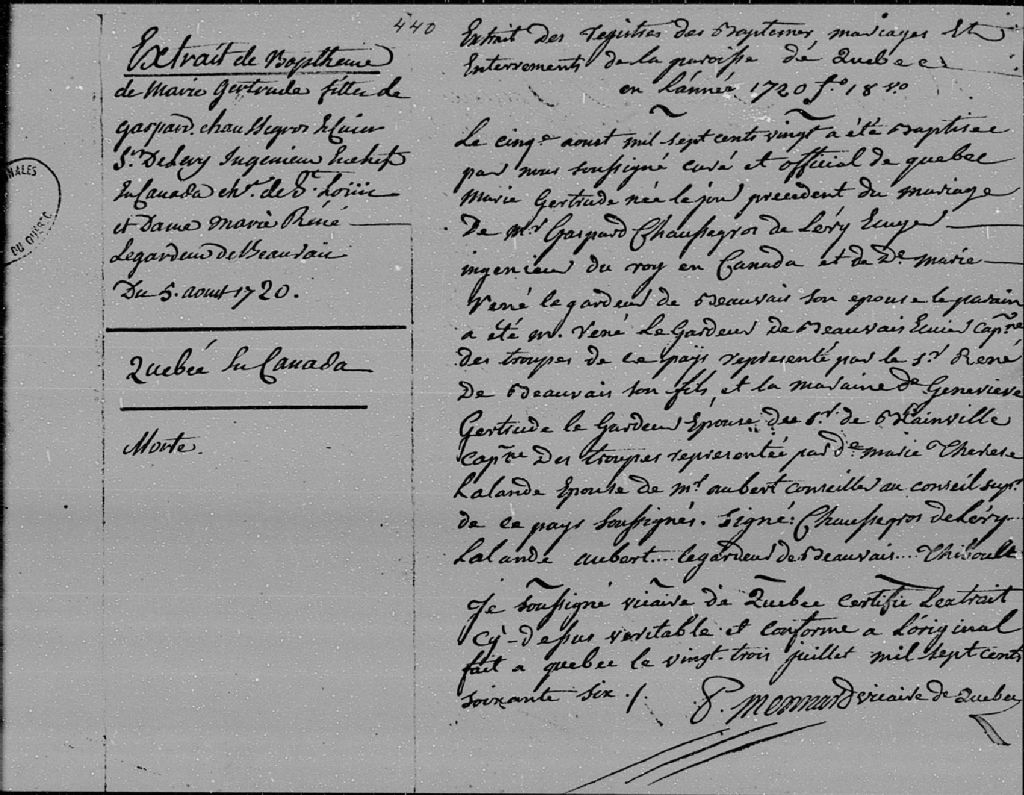 440
Extrait de Baptheme
de Marie Gertrude fille de
gaspard chaussegros Ecuier
Sr. De Lery Ingenieur En chef
En Canada chr. de St. Louis
et Dame marie René
Legardeur de Beauvais
Du 5. aoust 1720.
Quebec En Canada
Morte.
NALES
DU QUEBEC
Extrait des registres des Baptemes mariages Et
Enterrements de la paroisse de Quebec
en l'année 1720 fo. 18 vo
Le cinqe. aoust mil sept cents vingt a été Baptisee
par nous soussigné curé et official de quebec
Marie Gertrude née le jour precedent du mariage
De mr Gaspard Chaussegros de Léry Ecuyer
ingenieur du roy en Canada et de De. marie
rené le gardeur de Beauvais son epouse le parain
a été m. rené Le Gardeur de Beauvais Ecuier Capne
des troupes de ce pays representé par le sr. René
De Beauvais son fils, et la maraine De Genevieve
Gertrude le Gardeur Epouse du sr. de Blainville
Capne Des troupes representée par De marie Therese
Lalande Epouse de mr. aubert conseiller au conseil supr.
de ce pays soussignés. Signé: Chaussegros de Léry
Lalande aubert.... legardeur de Beauvais... Thiboult
Je soussigné vicaire de Quebec certifie L'extrait
Cy-dessus veritable et conforme a L'original
fait a quebec le vingt-trois juillet mil sept cents
soixante six ./.
vicaire de Quebec